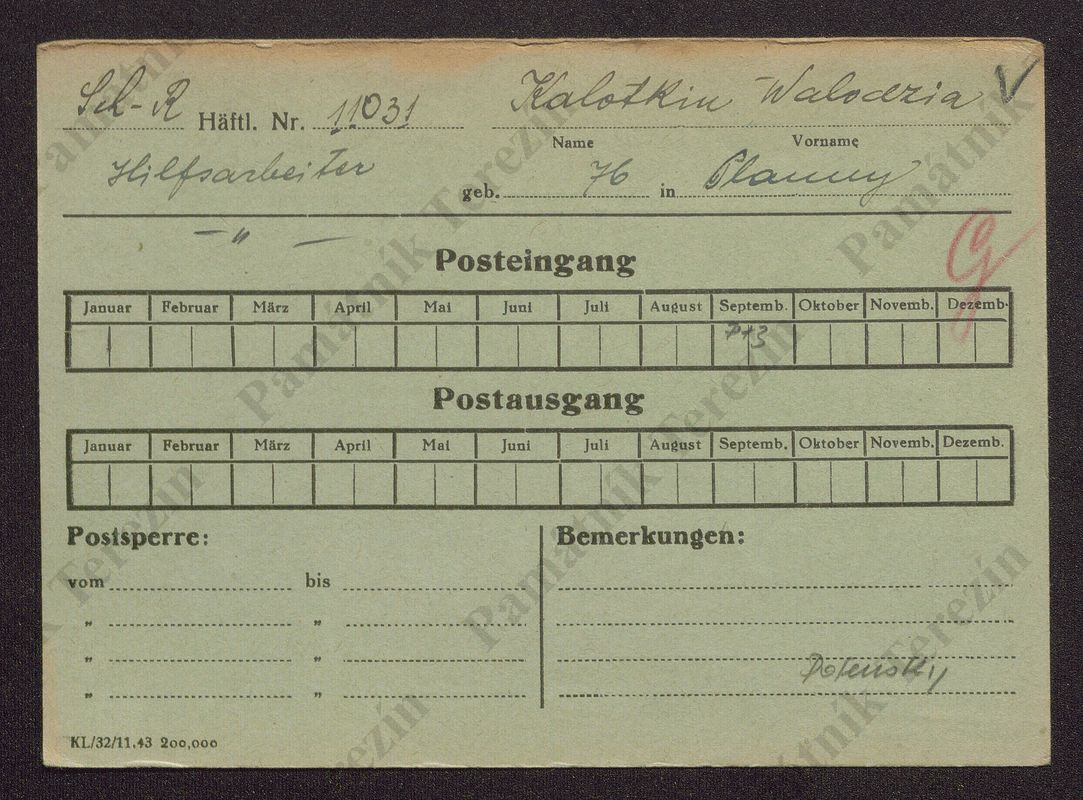 Sch-R Häftl. Nr. 11031 Kalotkin Walodzia V
Name Vorname
Hilfsarbeiter geb. 76 in Planny
— " —
G
Posteingang
Januar Februar März April Mai Juni Juli August Septemb. Oktober Novemb. Dezemb.
Postausgang
Januar Februar März April Mai Juni Juli August Septemb. Oktober Novemb. Dezemb.
Postsperre: Bemerkungen:
vom bis
" "
" "
" "
KL/32/11.43 200,000
Památník Terezín